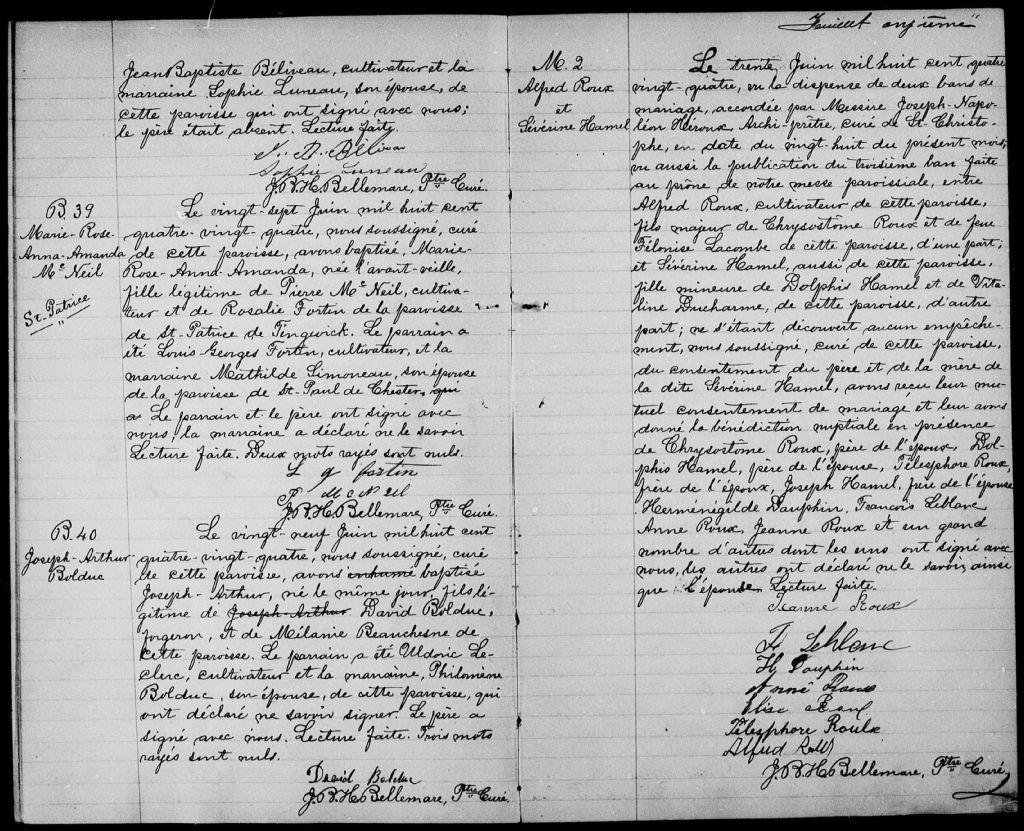 Jean Baptiste Béliveau, cultivateur et la
marraine Sophie Luneau, son épouse, de
cette paroisse qui ont signé avec nous;
le père était absent. Lecture faite.
J. B. Béliveau
Sophie Luneau
J.B.H. Bellemare, Ptre Curé.
B. 39
Marie-Rose-
Anna-Amanda
Mc Neil
St. Patrice
"
Le vingt-sept Juin mil huit cent
quatre-vingt-quatre, nous soussigné, curé
de cette paroisse, avons baptisé, Marie-
Rose-Anna-Amanda, née l'avant-veille,
fille légitime de Pierre Mc Neil, cultiva-
teur et de Rosalie Fortin de la paroisse
de St-Patrice de Tingwick. Le parrain a
été Louis-Georges Fortin, cultivateur, et la
marraine Mathilde Simoneau, son épouse
de la paroisse de St-Paul de Chester, qui
a Le parrain et le père ont signé avec
nous; la marraine a déclaré ne le savoir
Lecture faite. Deux mots rayés sont nuls.
L g fortin
P Mc Neil
J.B.H. Bellemare, Ptre Curé.
B. 40
Joseph-Arthur
Bolduc
Le vingt-neuf Juin mil huit cent
quatre-vingt-quatre, nous soussigné, curé
de cette paroisse, avons inhumé baptisé
Joseph-Arthur, né le même jour, fils lé-
gitime de Joseph-Arthur David Bolduc,
forgeron, et de Mélanie Beauchesne de
cette paroisse. Le parrain a été Uldoric Le-
clerc, cultivateur et la marraine, Philomène
Bolduc, son épouse, de cette paroisse, qui
ont déclaré ne savoir signer. Le père a
signé avec nous. Lecture faite. Trois mots
rayés sont nuls.
David Bolduc
J.B.H. Bellemare, Ptre Curé.
Feuillet onzième"
M. 2
Alfred Roux
et
Sévérine Hamel
Le trente Juin mil huit cent quatre
vingt-quatre, vu la dispense de deux bans de
mariage, accordée par Messire Joseph-Napo-
léon Héroux, Archi-prêtre, curé de St-Christo-
phe, en date du vingt-huit du présent mois;
vu aussi la publication du troisième ban faite
au prône de notre messe paroissiale, entre
Alfred Roux, cultivateur de cette paroisse,
fils majeur de Chrysostome Roux et de feue
Félonise Lacombe de cette paroisse, d'une part;
et Sévérine Hamel, aussi de cette paroisse,
fille mineure de Dolphis Hamel et de Vita-
line Ducharme, de cette paroisse, d'autre
part; ne s'étant découvert aucun empêche-
ment, nous soussigné, curé de cette paroisse,
du consentement du père et de la mère de
la dite Sévérine Hamel, avons reçu leur mu-
tuel consentement de mariage et leur avons
donné la bénédiction nuptiale en présence
de Chrysostome Roux, père de l'époux, Dol-
phis Hamel, père de l'épouse, Télesphore Roux,
frère de l'époux, Joseph Hamel, frère de l'épouse
Herménégilde Dauphin, François Leblanc
Anne Roux, Jeanne Roux et un grand
nombre d'autres dont les uns ont signé avec
nous, les autres ont déclaré ne le savoir, ainsi
que l'épouse. Lecture faite.
Jeanne Roux
F Leblanc
H Dauphin
Anné Roux
Elise Roux
Télesphore Roulx
Alfred Roux
J.B.H. Bellemare, Ptre Curé